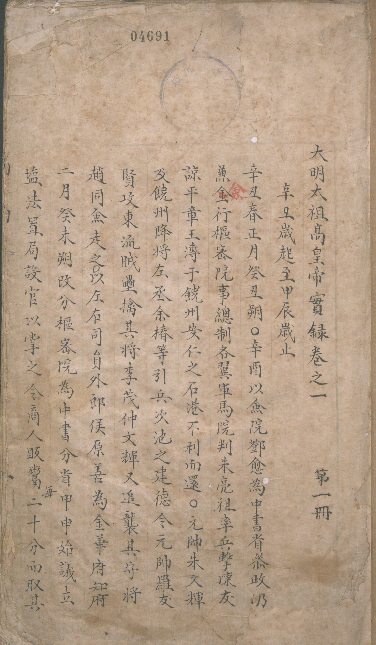 04691
大明太祖高皇帝實錄卷之一　第一冊
辛丑歲起至甲辰歲止
辛丑春正月癸丑朔〇辛酉以僉院鄧愈為中書省叅政仍
兼僉行樞密院事總制各翼軍馬院判朱亮祖率兵擊陳友
諒平章王溥于饒州安仁之石港不利而還〇元帥朱文輝
及饒州降將左丞余椿等引兵次池之建德令元帥羅友
賢攻東流賊壘擒其將李茂仲文輝又追襲其守將
趙同僉走之以左右司員外郎侯原善為金華府知府
二月癸未朔改分樞密院為中書分省甲申始議立
鹽法置局設官以掌之令商人販鬻每二十分而取其